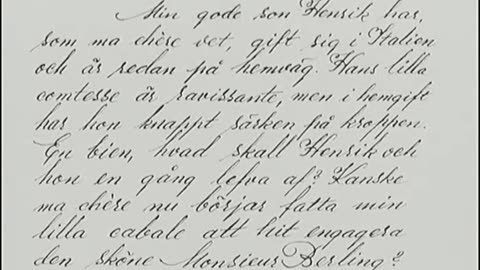 Min gode son Henrik har,
som ma chère vet, gift sig i Italien
och är redan på hemväg. Hans lilla
comtesse är ravissante, men i hemgift
har hon knappt särken på kroppen.
Eu bien, hvad skall Henrik och
hon en gång lefva af? Kanske
ma chère nu börjar fatta min
lilla cabale att hit engagera
den sköne Monsieur Berling?